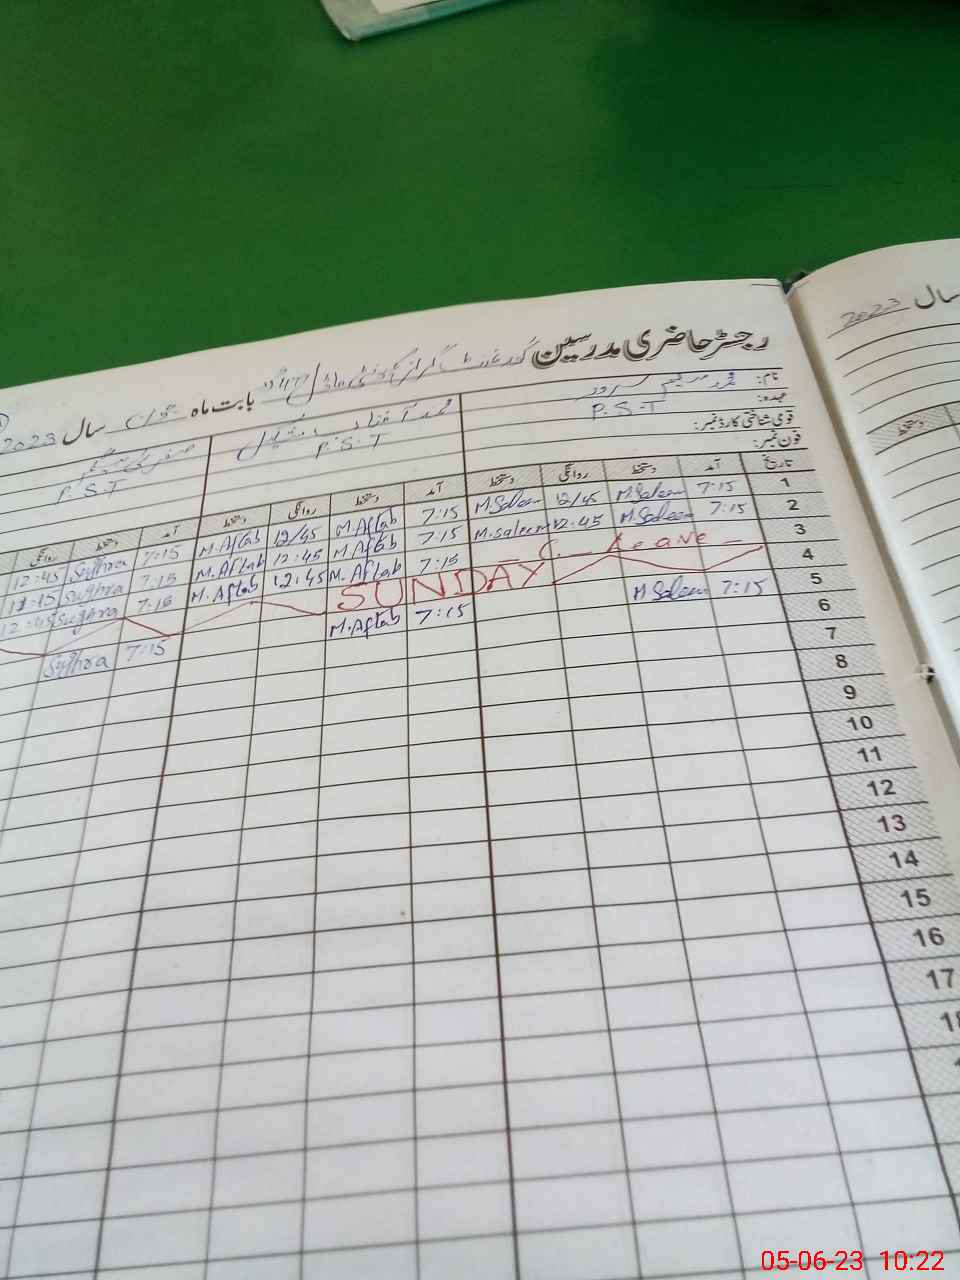 رجسٹر حاضری مدرسین گورنمنٹ گرلز بابت ماہ جون سال 2023
سال 2023
نام: محمد سلیم سرور
محمد آفتاب
عہدہ: P.S.T
P.S.T
P.S.T
قومی شناختی کارڈ نمبر:
فون نمبر:
تاریخ آمد دستخط روانگی دستخط آمد دستخط روانگی دستخط آمد دستخط روانگی
دستخط
1 7:15 M.Saleem 12/45 M.Saleem 7:15 M.Aftab 12/45 M.Aftab 7:15 Sughra 12:45
2 7:15 M.Saleem 12:45 M.Saleem 7:15 M.Aftab 12:45 M.Aftab 7:15 Sughra 12:45
3 C. Leave 7:15 M.Aftab 12:45 M.Aftab 7:15 Sughra 12:45
4 SUNDAY
5 7:15 M.Saleem 7:15 M.Aftab 7:15 Sughra
6
7
8
9
10
11
12
13
14
15
16
17
18
05-06-23 10:22